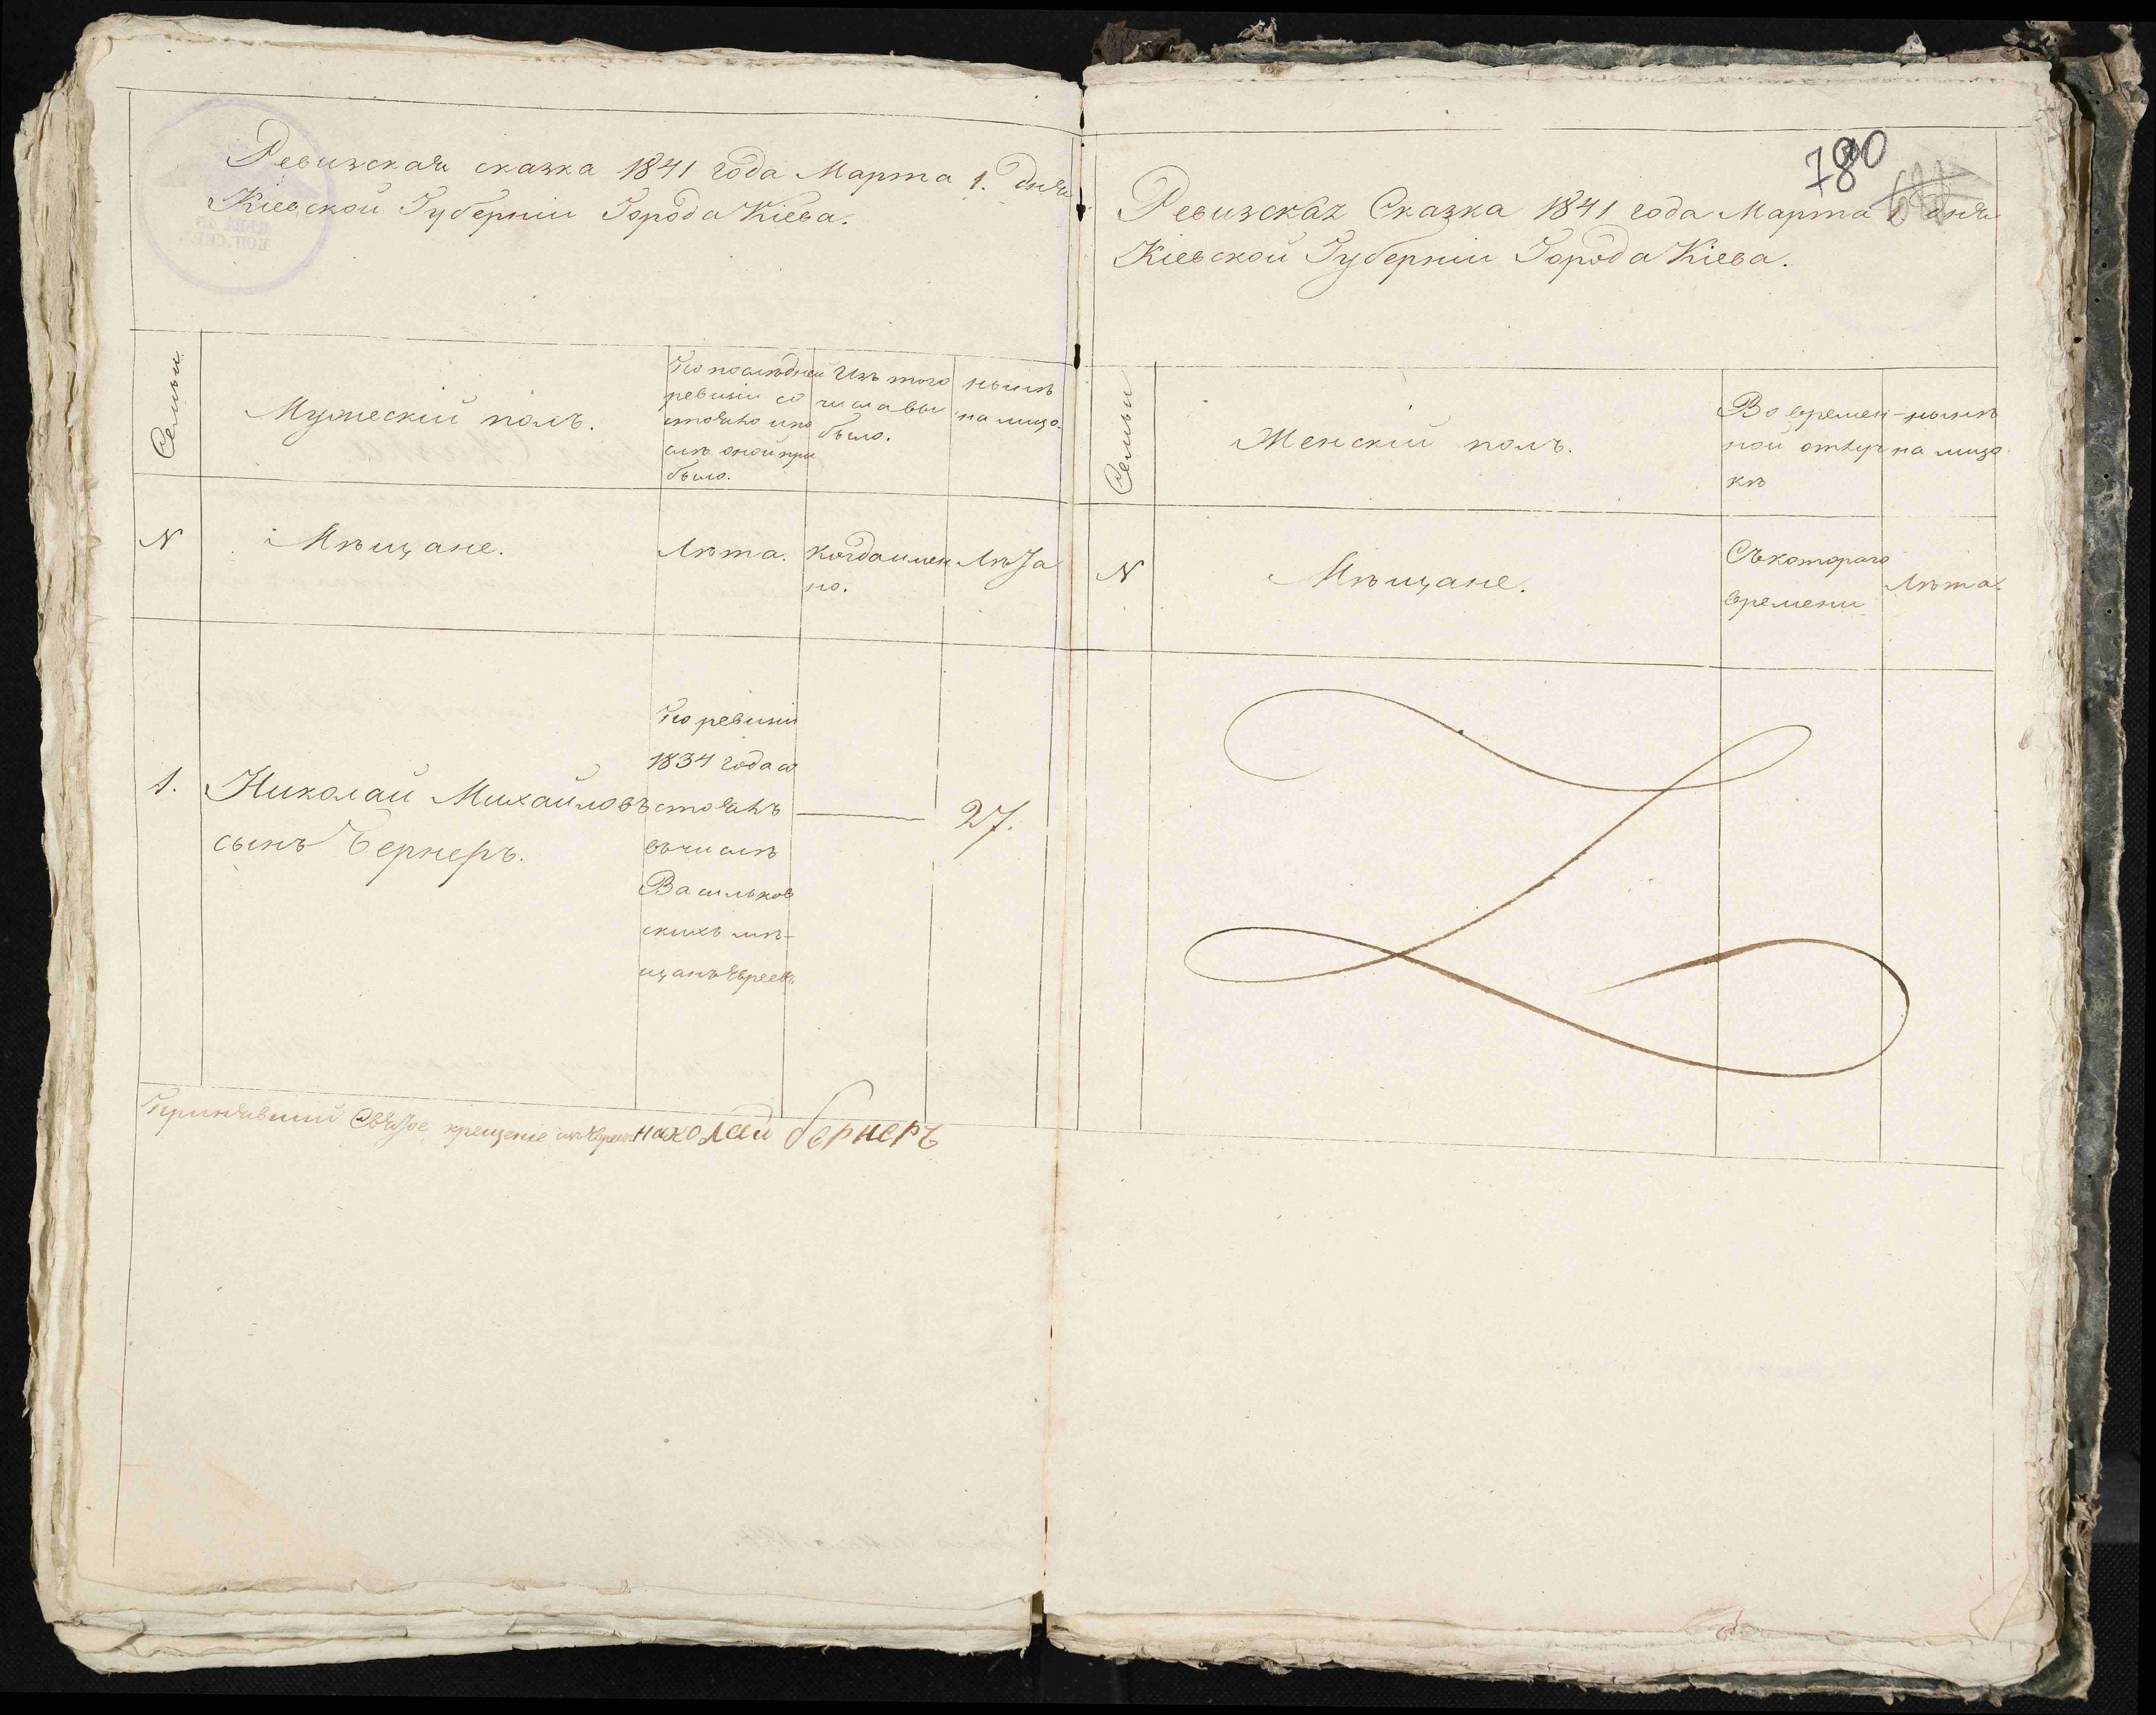 Ревизская сказка 1841 года Марта 1. дня
Кіевской Губерніи Города Кіева.
Семьи
Мужескій полъ.
По последней
ревизіи со
стояло и по
слѣ оной при
было.
Изъ того
числа вы
было.
нынѣ
на лицо.
N
Мѣщане.
Лѣта.
Когда имен
но.
Лѣта
1.
Николай Михайловъ
сынъ Бернеръ.
По ревизіи
1834 года со
стоялъ
въ числѣ
Васильков
скихъ мѣ-
щанъ Евреевъ
27.
Принявшій Святое крещеніе изъ Евреевъ николай бернеръ
780
Ревизская Сказка 1841 года Марта 1 дня
Кіевской Губерніи Города Кіева.
Семьи
Женскій полъ.
Во времен-
ной отлуч
кѣ
нынѣ
на лицо.
N
Мѣщане.
Съ котораго
времени
Лѣта.